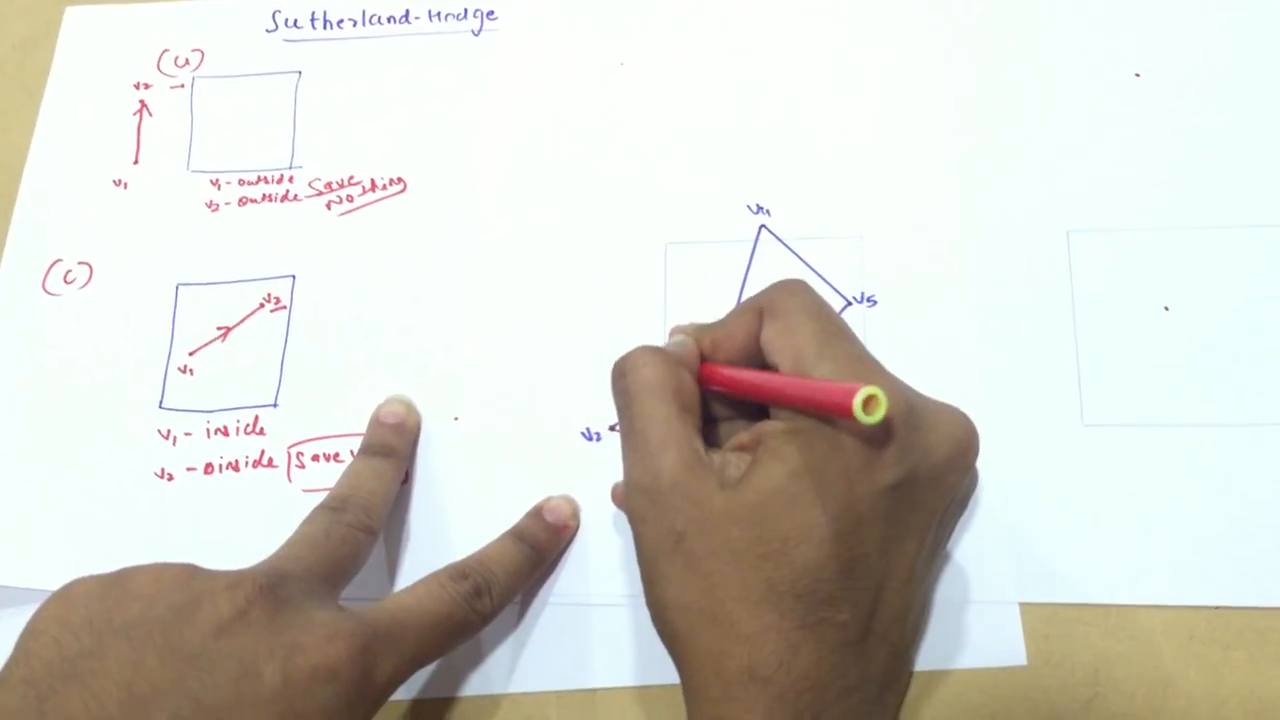 Sutherland-Hodge
(a)
v2
v1
v1-outside
v2-outside Save Nothing
(c)
v2
v1
v1-inside
v2-inside Save
v4
v5
v2